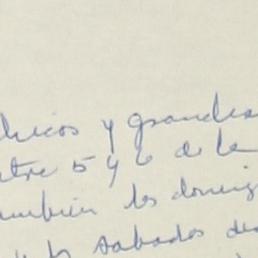 chicos y grandes
entre 5 y 6 de la
también los doming
los sabados de